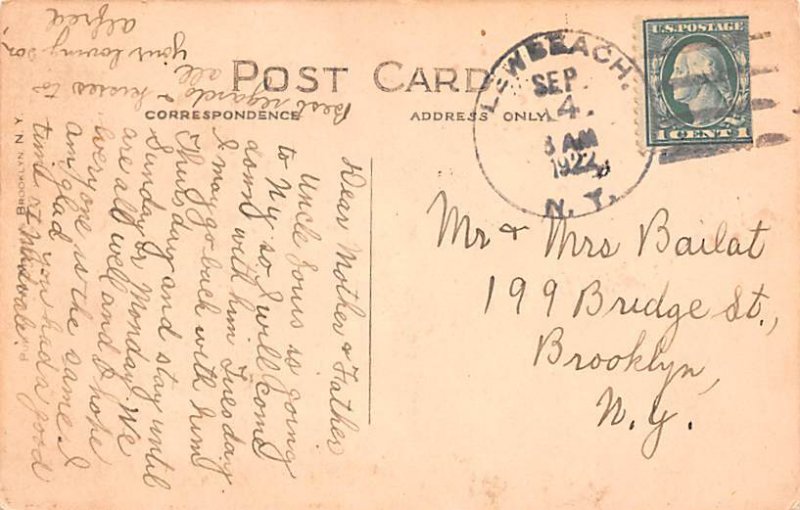 POST CARD
CORRESPONDENCE
ADDRESS ONLY
LEWBEACH.
SEP
14
8 AM
1922
N. Y.
U.S. POSTAGE
1 CENT 1
Mr & Mrs Bailat
199 Bridge St.,
Brooklyn,
N.Y.
Dear Mother & Father
Uncle Louis is going
to NY so I will come
down with him Tuesday.
I may go back with him
Thursday and stay until
Sunday or Monday. We
are all well and I hope
everyone is the same. I
am glad you had a good
time at
Best regards & kisses to
all
your loving son,
Alfred
BROOKLYN N Y